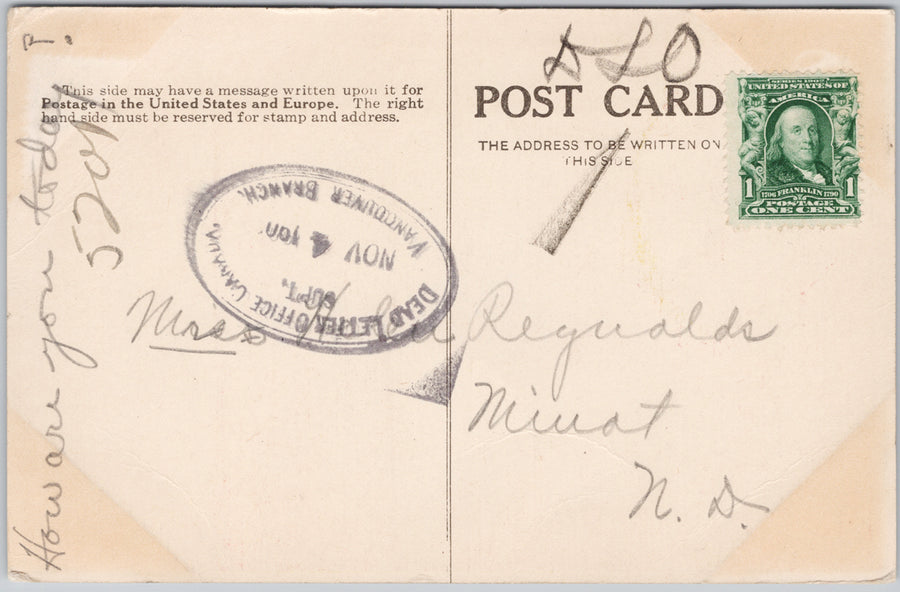 How are you today
P.
5201
This side may have a message written upon it for
Postage in the United States and Europe. The right
hand side must be reserved for stamp and address.
DLO
POST CARD
THE ADDRESS TO BE WRITTEN ON
THIS SIDE
SERIES 1902
UNITED STATES OF
AMERICA
1 1
1706 FRANKLIN 1790
POSTAGE
ONE CENT
DEAD LETTER OFFICE CANADA
SEPT.
NOV 4
VANCOUVER BRANCH.
Miss Reynolds
Minot
N. D.